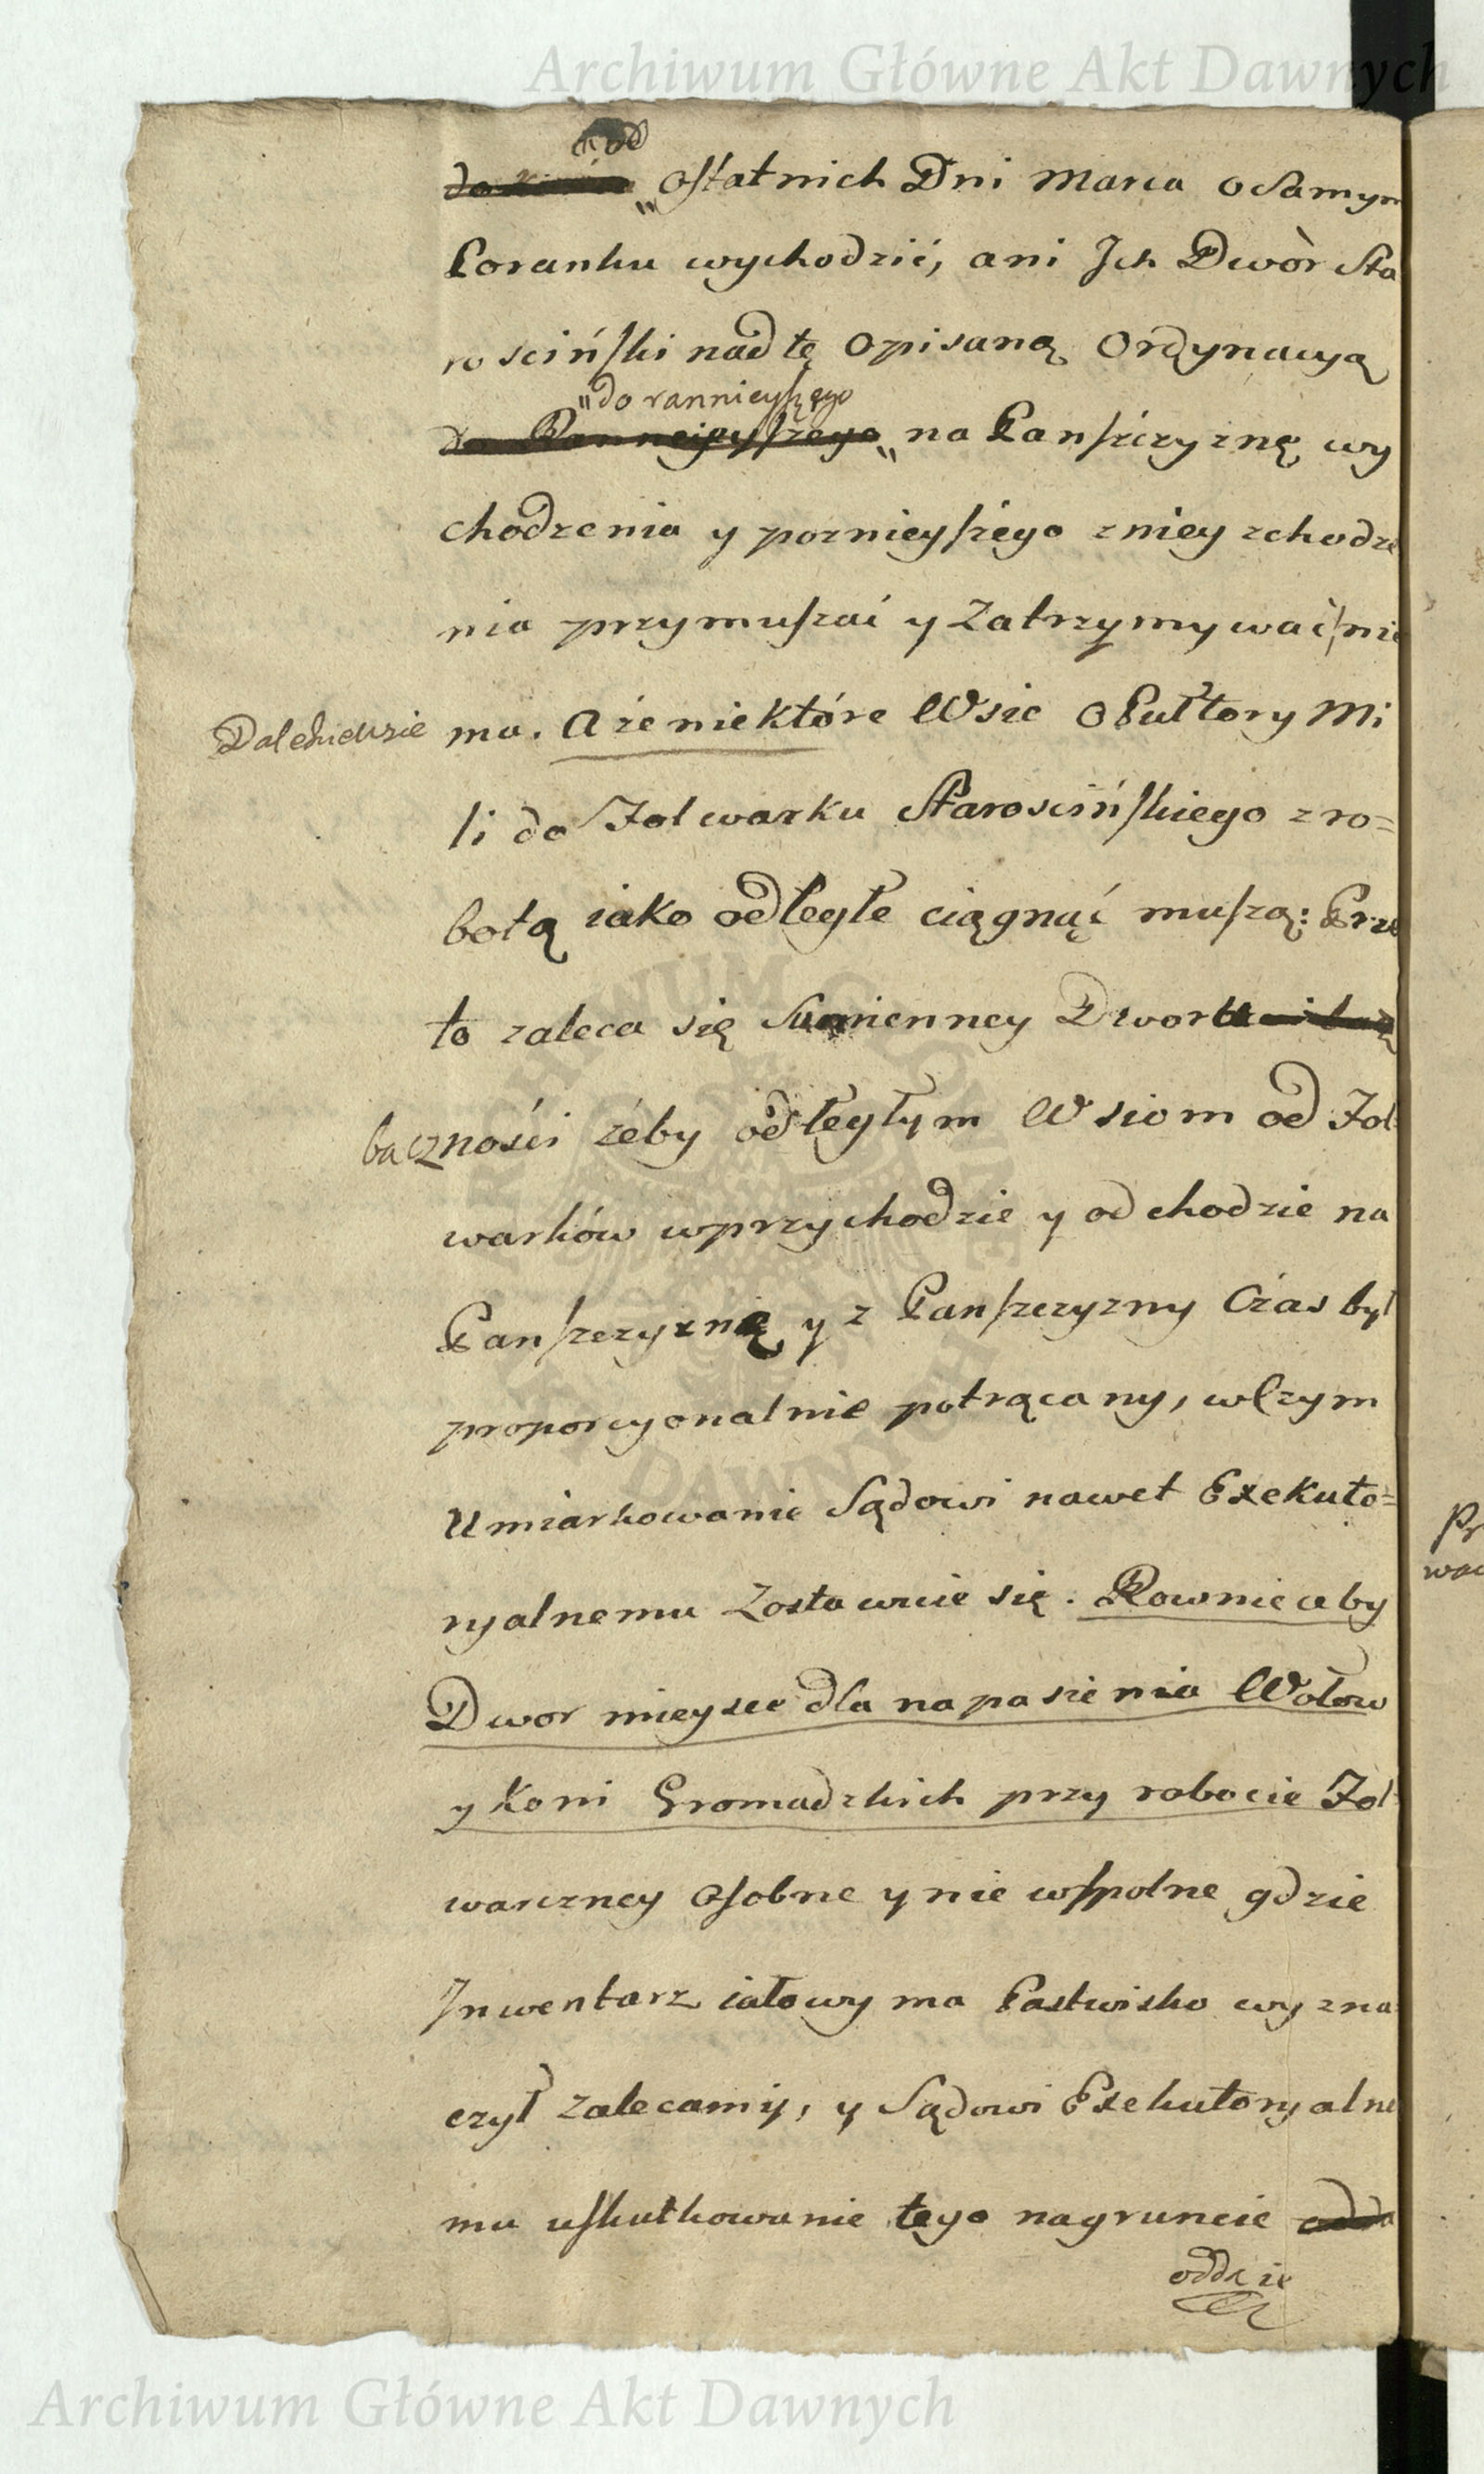 Archiwum Główne Akt Dawnych
od
ostatnich Dni Marca o Samym
Poranku wychodzić, ani Jch Dwòr Sta
rosciński nad tę opisaną Ordynacyą
"do rannieyszego
do Rannieyszego na Panszczyznę wy
chodzenia y poznieyszego z niey zchodze
nia przymuszać y zatrzymywać nie
Dalekie Wsie
ma. A że niektóre Wsie o Pułtory Mi
li do Folwarku Starościńskiego z ro=
botą iako odległe ciągnąć muszą: Prze
to zaleca się Sumienney Dworu
baczności żeby odległym Wsiom od Fol
warków w przychodzie y odchodzie na
Panszczyznę y z Panszczyzny Czas był
proporcyonalnie potrącany, w czym
Umiarkowanie Sądowi nawet Exekuto=
ryalnemu Zostawuie się. Rownie aby
Dwor mieysce dla napasienia Wołow
y Koni Gromadzkich przy robocie Fol
warczney osobne y nie wspolne gdzie
Jnwentarz iałowy ma Pastwisko wyzna
czył zalecamy, y Sądowi Exekutoryalne
mu uskutkowanie tego na gruncie odda
oddaie
Pr
wac
ARCHIWUM GŁÓWNE AKT DAWNYCH
Archiwum Główne Akt Dawnych